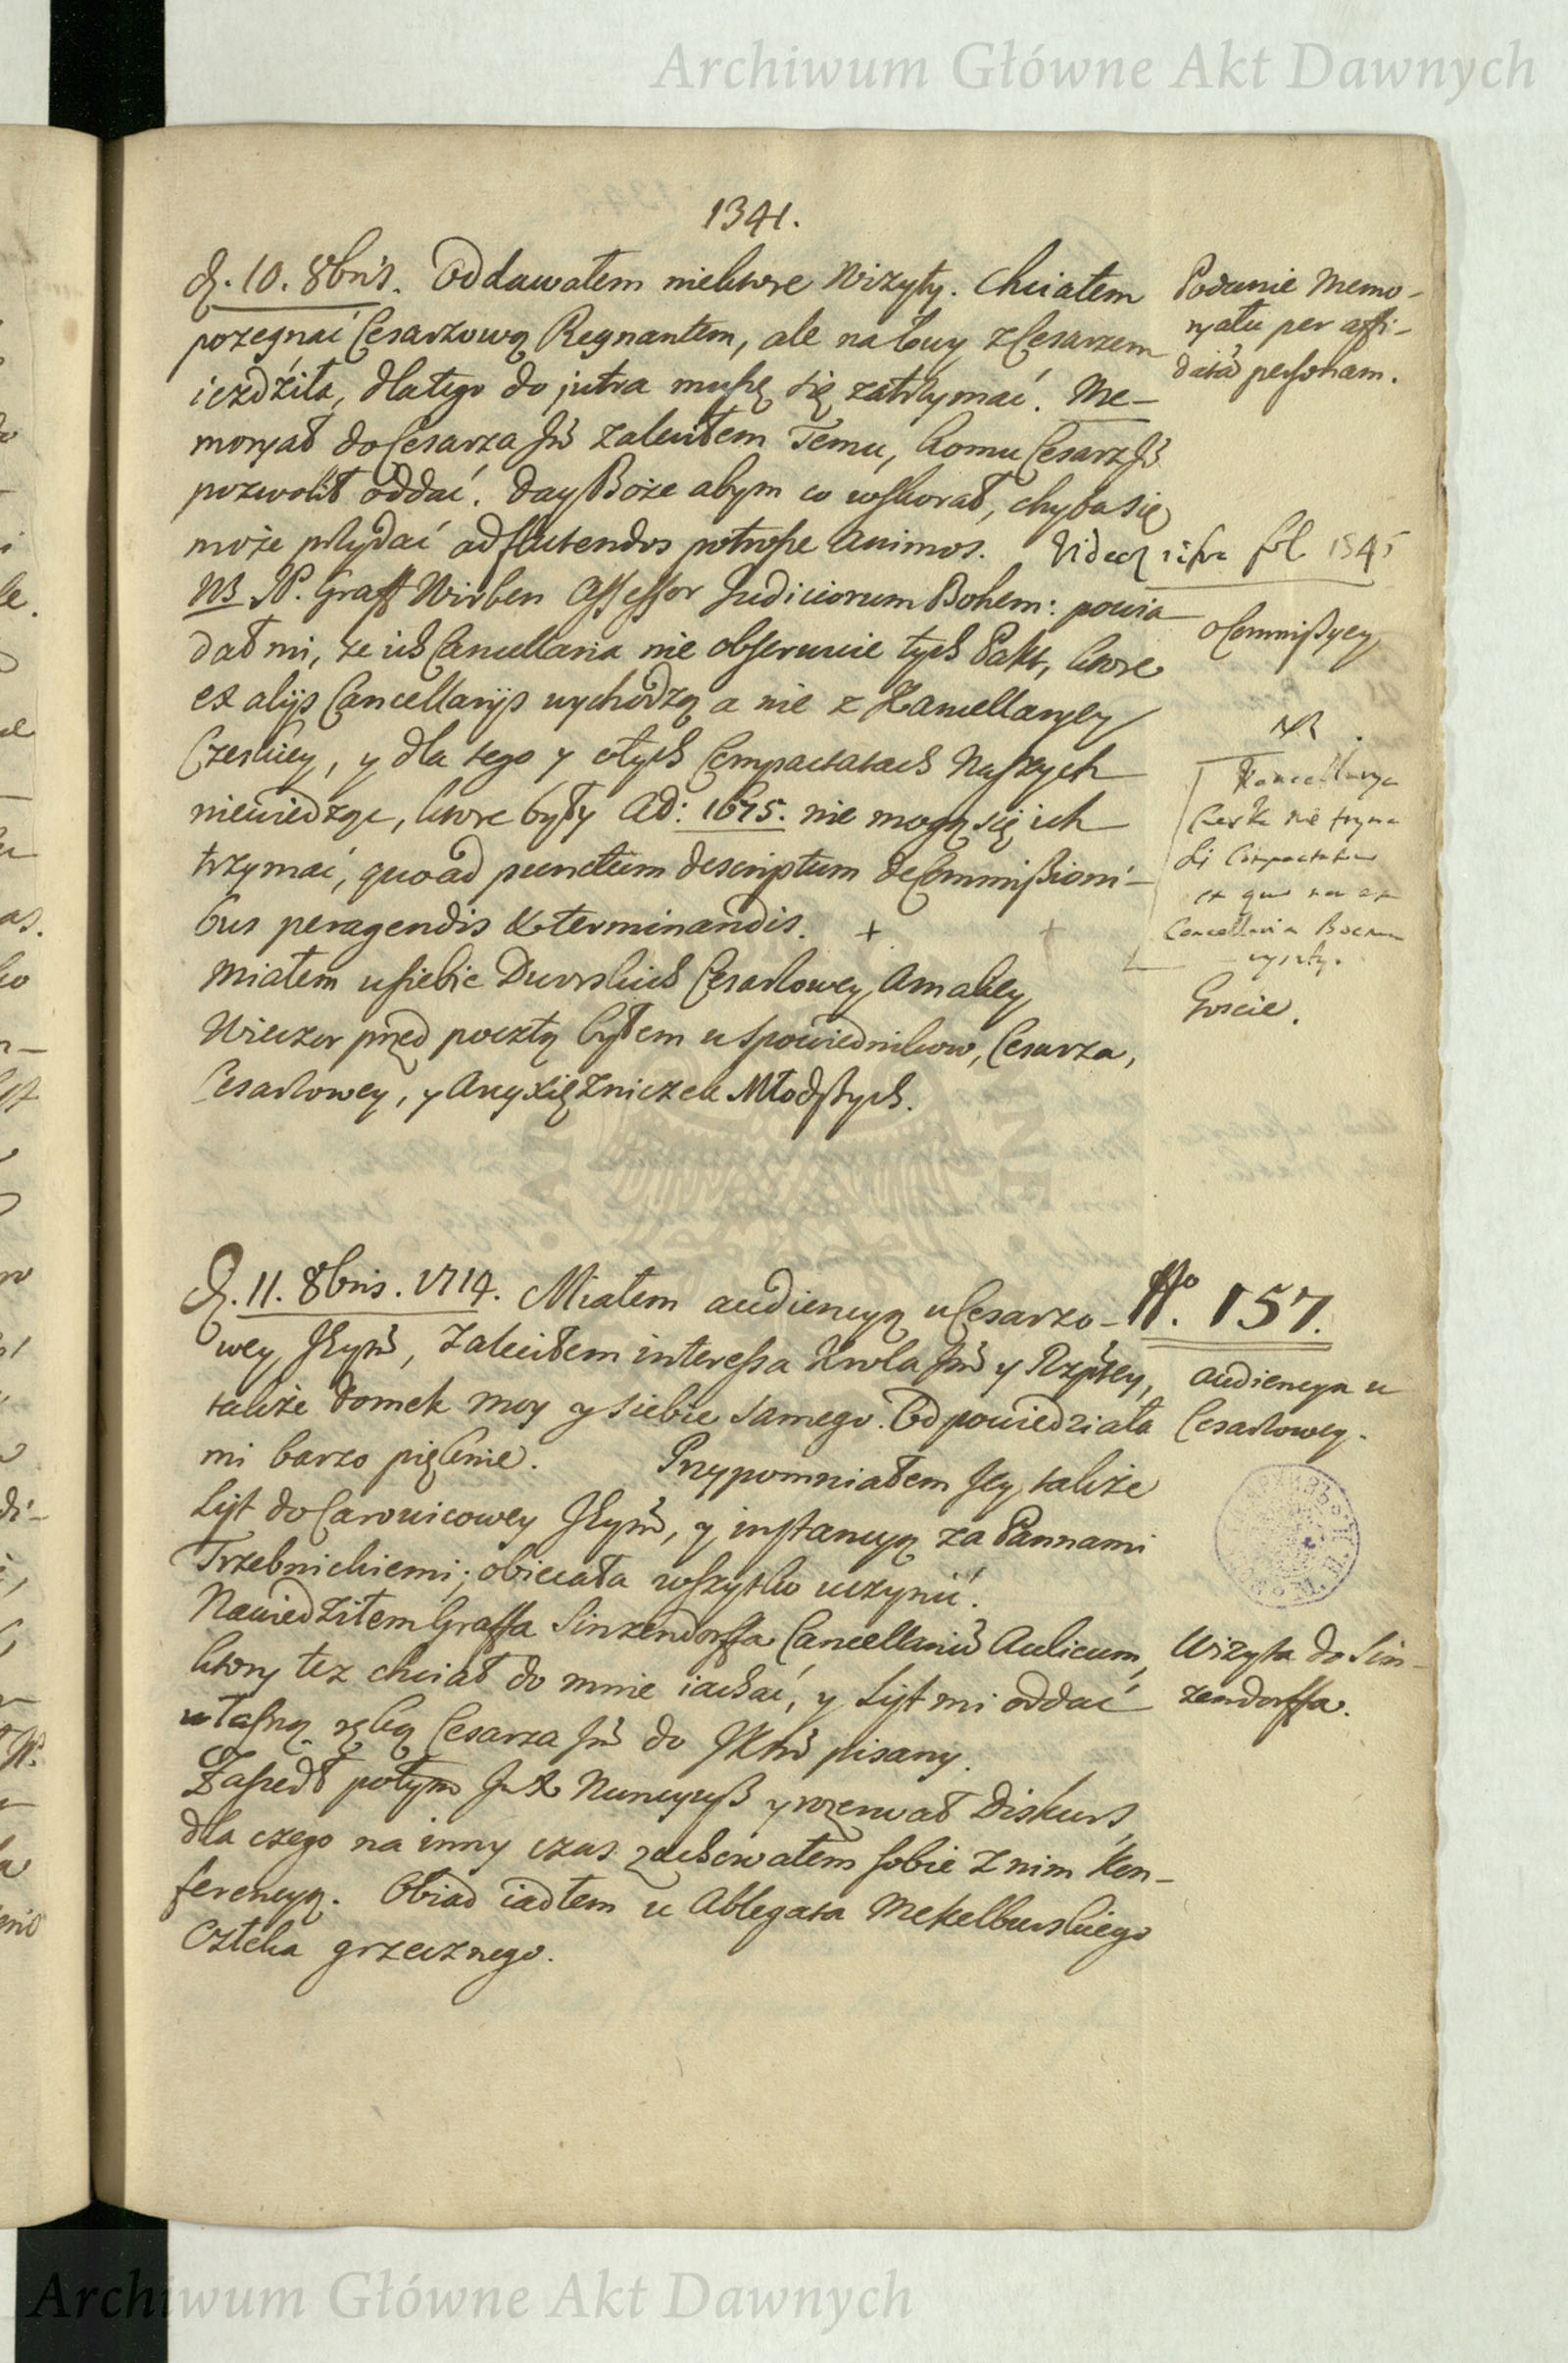 Archiwum Główne Akt Dawnych
1341.
d. 10. 8bris. Oddawałem niektore Wizyty. Chciałem
pozegnać Cesarzową Regnantem, ale na łowy z Cesarzem
iezdźiła, dlatego do jutra muszę się zatrzymać. Me-
moryał do Cesarza Jmć zaleciłem Temu, komu Cesarz Jmć
pozwolił oddać. Day Boże abym co wskorał, chyba się
może przydać ad flectendos potrosze animos. Videatur infra fol 1345
NB JP. Graff Wirben Assessor Judiciorum Bohem: powia
dał mi, że ich Cancellaria nie obserwuie tych Pakt, ktore
ex alijs Cancellarijs wychodzą a nie z Kancellaryey
Czeskiey, y dla tego y o tych Compactatach Naszych
niewiedząc, ktore były Ad: 1675. nie mogą się ich
trzymać, quoad punctum descriptum de Commißioni-
bus peragendis & terminandis. +
Miałem u siebie Dworskich Cesarzowey Amaliey
Wieczor przed pocztą byłem u Spowiednikow, Cesarza,
Cesarzowey, y Arcyxiężniczek Młodszych.
Podanie Memo-
ryału per affi-
datā personam.
o Commißyey
NB.
Kancellarya
Czeska nie trzyma
si Compactatow
ex quo non ex
Cancellaria Boema
wyszły.
Goscie.
d. 11. 8bris. 1714. Miałem audiencyą u Cesarzo-
wey Jeymć, zaleciłem interessa Krola Jmć y Rzptey,
także domek moy y siebie samego. Odpowiedziała
mi barzo pięknie. Przypomniałem Jey także
List do Carowicowey Jeymć, y instancyą za Pannami
Trzebnickiemi; obiecała wszytko uczynić.
Nawiedziłem Graffa Sinzendorffa Cancellariū Aulicum,
ktory tez chciał do mnie iachać, y List mi oddać
własną ręką Cesarza Jmć do JKMć pisany.
Zaszedł potym JmX Nuncyuß y rozerwał Diskurs,
dla czego na inny czas zachowałem sobie z nim Kon-
ferencyą. Obiad iadłem u Ablegata Mekelburskiego
Człeka grzecznego.
No. 157.
Audiencya u
Cesarzowey.
Wizyta do Sin-
zendorffa.
Archiwum Główne Akt Dawnych